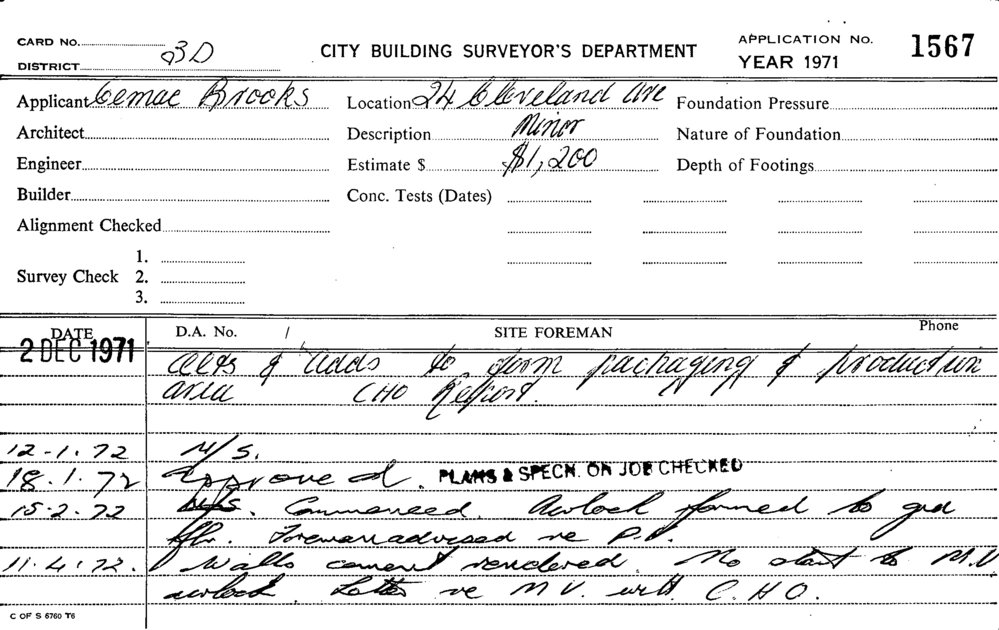 CARD No.
DISTRICT BD
CITY BUILDING SURVEYOR'S DEPARTMENT
APPLICATION No. 1567
YEAR 1971
Applicant Cemac Brooks
Location 24 Cleveland Ave
Foundation Pressure
Architect
Description Minor
Nature of Foundation
Engineer
Estimate $ $1,200
Depth of Footings
Builder
Conc. Tests (Dates)
Alignment Checked
Survey Check 1.
2.
3.
DATE D.A. No. / SITE FOREMAN Phone
2 DEC 1971
Alts & adds to form packaging & production
area CHO Report.
12-1.72 N/S.
18.1.72 Approved. PLANS & SPECN. ON JOB CHECKED
15.2.72 Commenced. Airlock formed to grd
flr. Foreman advised re P.P.
11.4.72. Walls cement rendered. No start to M.V
airlock. Letter re M.V. with C.H.O.
C OF S 6760 T6